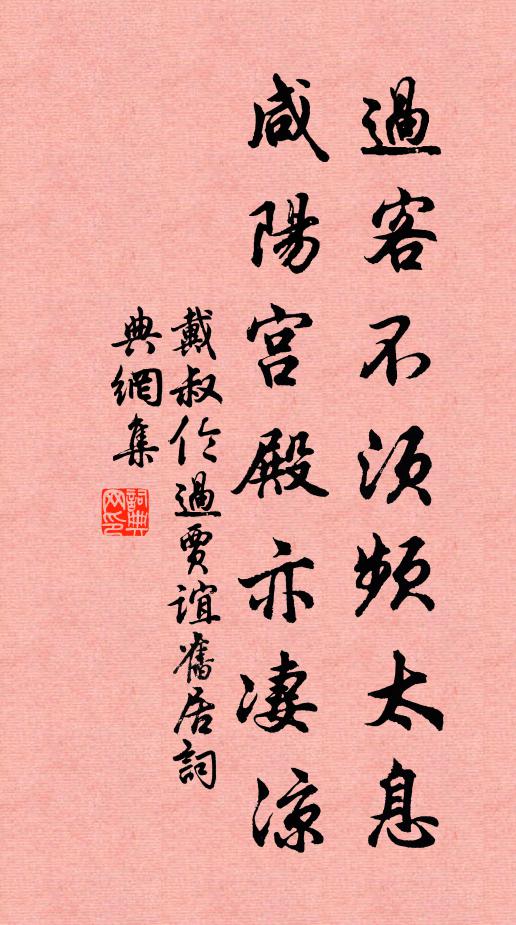 過客不須頻太息
咸陽宮殿亦凄涼
戴叔伦過賈誼舊居詞
典網集
詞典
网印